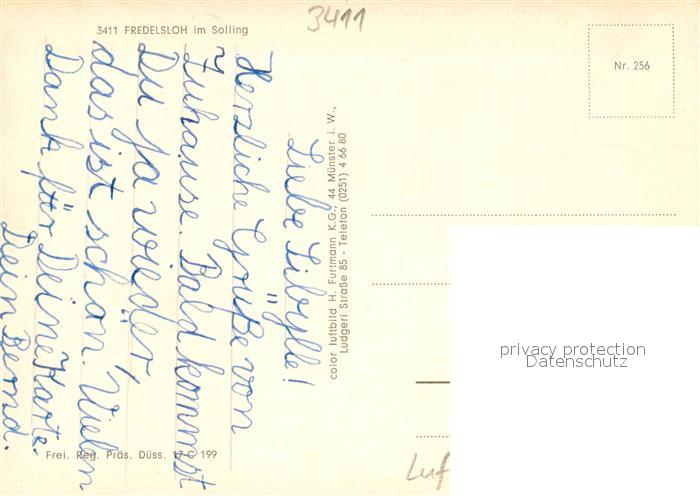 3411 FREDELSLOH im Solling
3411
Nr. 256
Liebe Sibylle!
Herzliche Grüße von
Zuhause. Bald kommst
Du ja wieder,
das ist schön. Vielen
Dank für Deine Karte.
Dein Bernd.
color luftbild H. Furtmann K.G., 44 Münster i. W.,
Ludgeri Straße 85 - Telefon (0251) 4 66 80
privacy protection
Datenschutz
Frei. Reg. Präs. Düss. 17-C 199
Luf